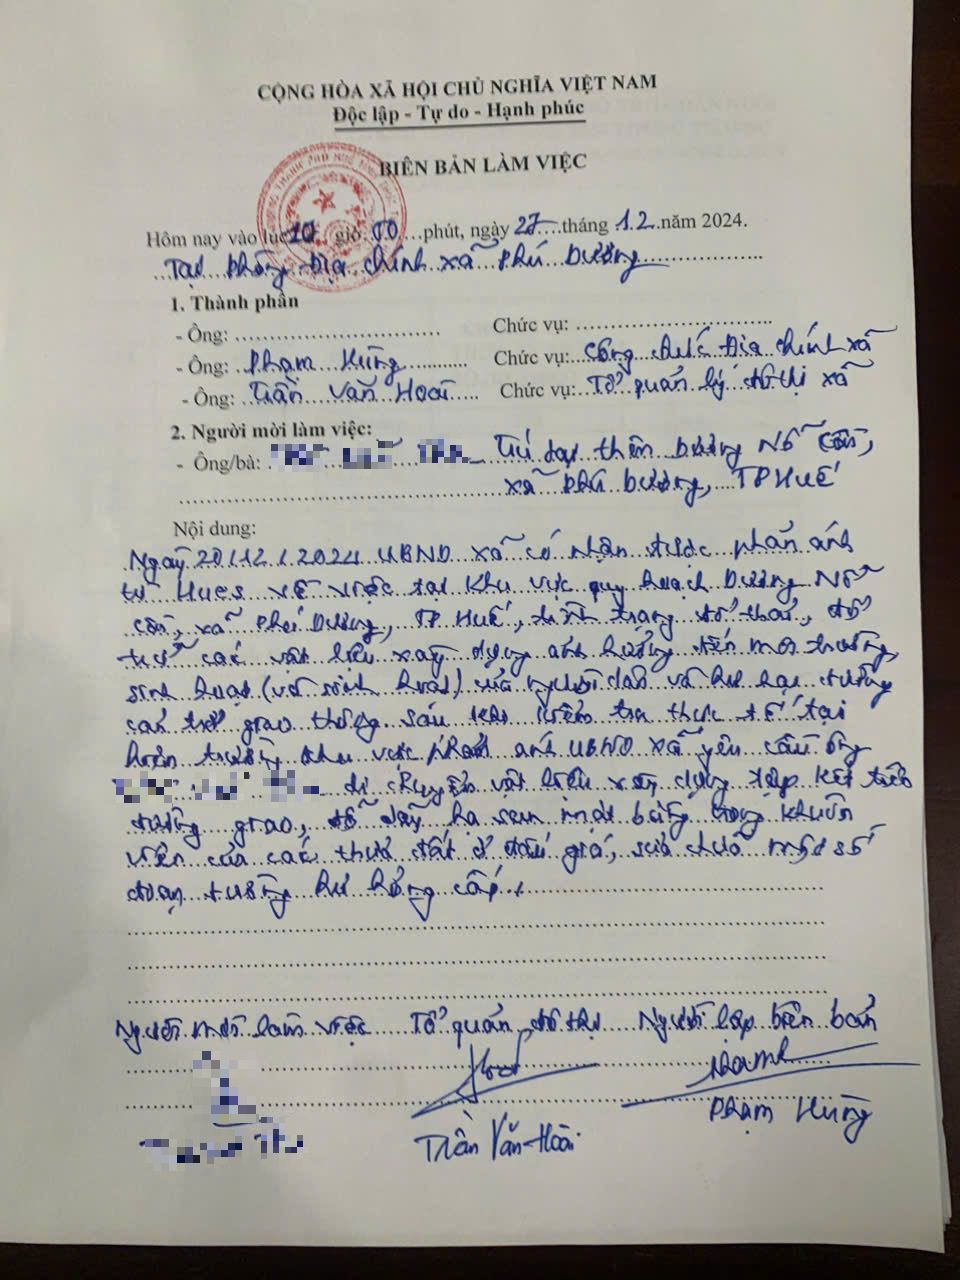 CỘNG HÒA XÃ HỘI CHỦ NGHĨA VIỆT NAM
Độc lập - Tự do - Hạnh phúc
BIÊN BẢN LÀM VIỆC
Hôm nay vào lúc 10 giờ 00 phút, ngày 27 tháng 12 năm 2024.
Tại phòng Địa chính xã Phú Dương
1. Thành phần
- Ông: Chức vụ:
- Ông: Phạm Hùng Chức vụ: Công chức Địa chính xã
- Ông: Trần Văn Hoài Chức vụ: Tổ quản lý đô thị xã
2. Người mời làm việc:
- Ông/bà: Trú tại thôn Dương Nỗ Cồn,
xã Phú Dương, TP Huế
Nội dung:
Ngày 20/12/2024 UBND xã có nhận được phản ánh
từ Hues về việc tại khu vực quy hoạch Dương Nỗ
Cồn, xã Phú Dương, TP Huế, tình trạng đổ thải, đổ
trữ các vật liệu xây dựng ảnh hưởng đến môi trường,
sinh hoạt (vệ sinh hoạt) của người dân và hư hại đường
cản trở giao thông sau khi kiểm tra thực tế tại
hiện trường khu vực phản ánh UBND xã yêu cầu ông
di chuyển vật liệu xây dựng tập kết trên
đường giao, đổ dây hạ san mặt bằng trong khuôn
viên của các thửa đất ở đấu giá, sửa chữa một số
đoạn đường hư hỏng cấp.
Người mời làm việc Tổ quản đô thị Người lập biên bản
Trần Văn Hoài
Phạm Hùng